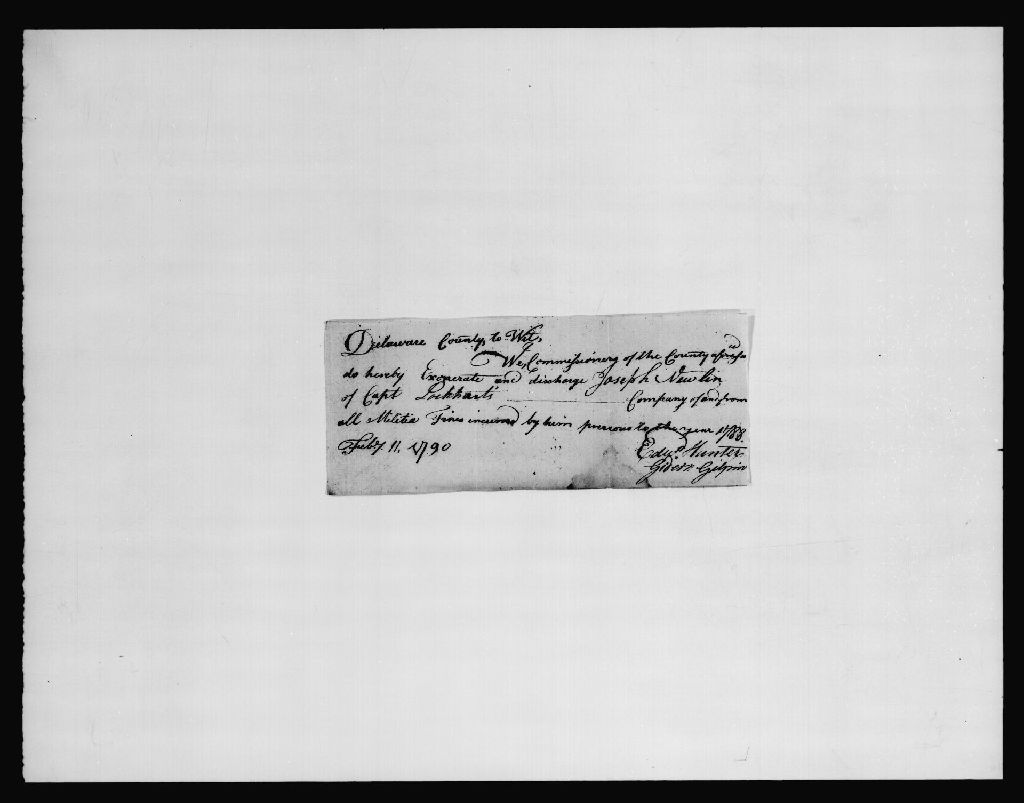 Delaware County, to Wit,
We, Commissioners of the County afores.d
do hereby Exonerate and discharge Joseph Newlin
of Capt Lockhart's Company of and from
all Militia Fines incurred by him previous to the year 1788.
Feb.y 11. 1790 Edw.d Hunter
Gideon Gilpin